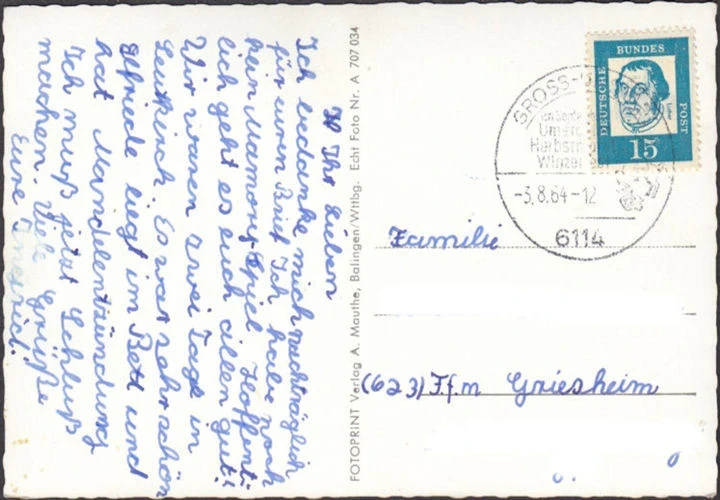 Ihr Lieben
Ich bedanke mich nachträglich
für euren Brief. Ich habe noch
kein Mamory-Spiel. Hoffent-
lich geht es euch allen gut!
Wir waren zwei Tage in
Leutkirch. Es war sehr schön
Elfriede liegt im Bett und
hat Mandelentzündung
Ich muß jetzt Schluß
machen. Viele Grüße
Eure
FOTOPRINT Verlag A. Mauthe, Balingen/Wttbg. Echt Foto Nr. A 707 034
DEUTSCHE BUNDES POST
Luther
15
GROSS-
Winzer
-3.8.64-12
6114
Familie
(623) F.f.m Griesheim